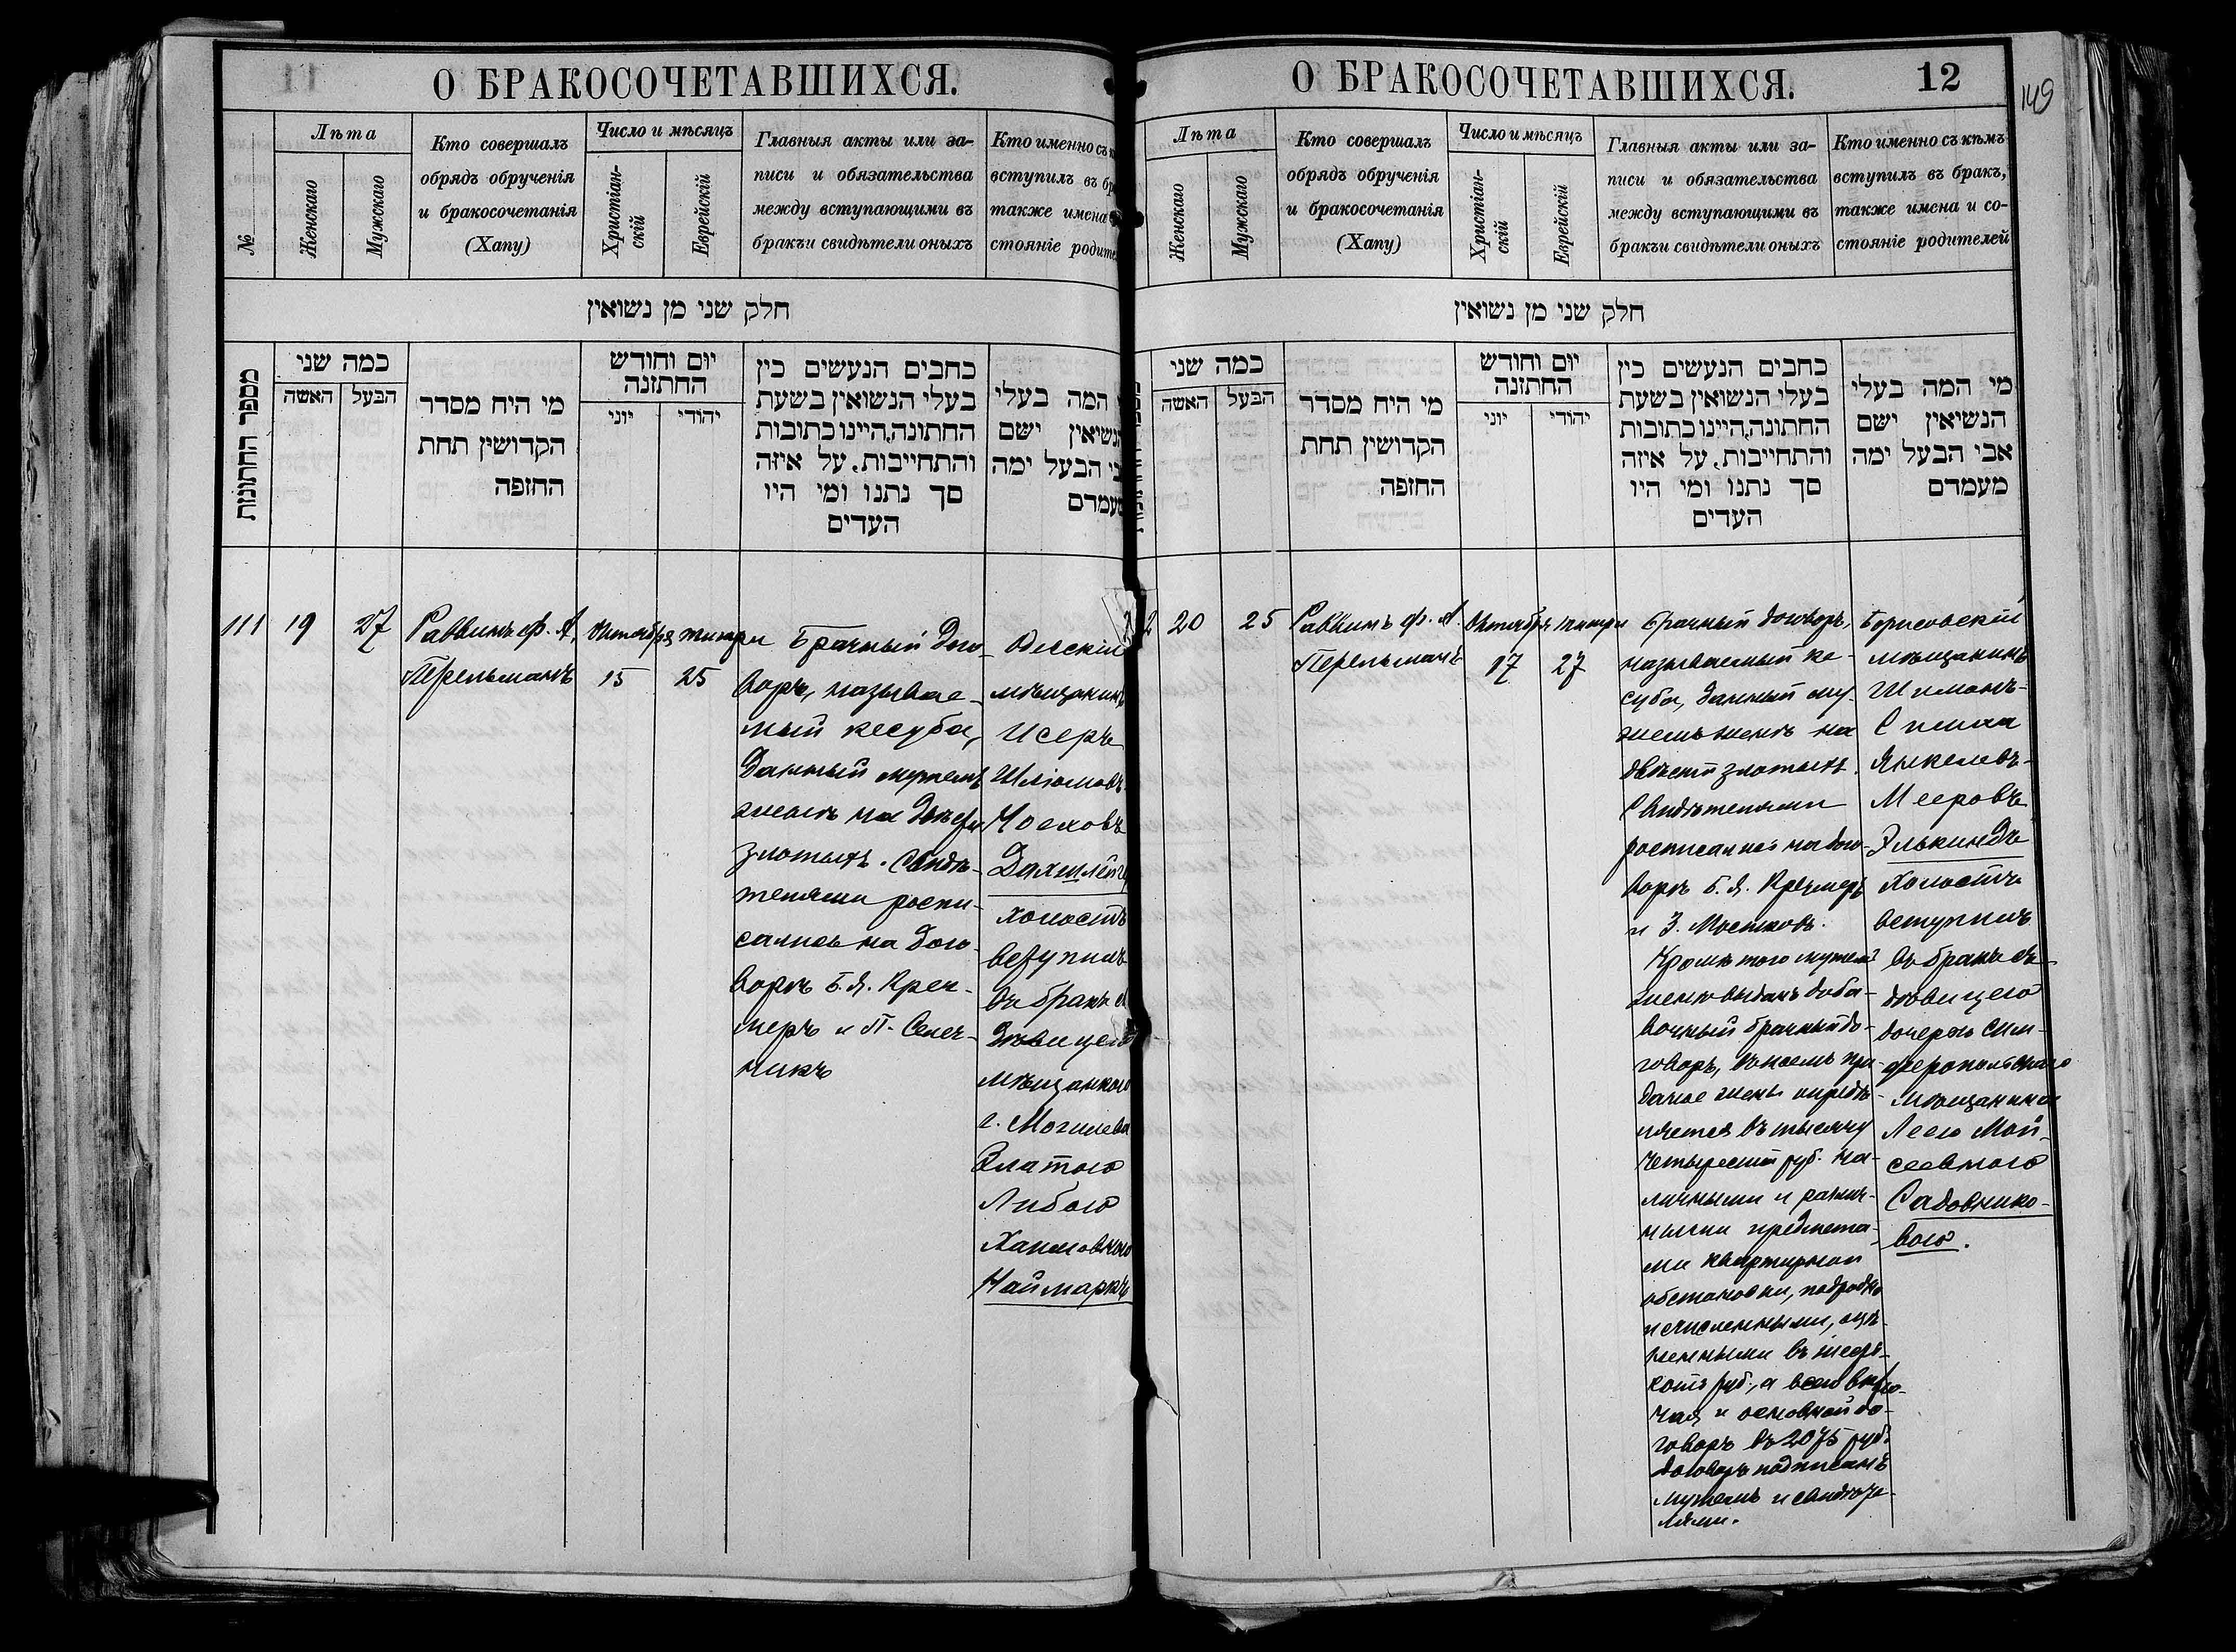 О БРАКОСОЧЕТАВШИХСЯ.
№
Лѣта
Женскаго
Мужскаго
Кто совершалъ
обрядъ обрученія
и бракосочетанія
(Хапу)
Число и мѣсяцъ
Христіан-
скій
Еврейскій
Главныя акты или за-
писи и обязательства
между вступающими въ
бракъи свидѣтели оныхъ
Кто именно съ
вступилъ въ
также имена
стояніе
חלק שני מן נשואין
מספר החתונות
כמה שני
האשה
הבעל
מי היח מסדר
הקדושין תחת
החזפה
יום וחודש
החתזנה
יוני
יהודי
כחבים הנעשים כין
בעלי הנשואין בשעת
החתונה,היינו כתובות
והתחייבות, על איזה
סך נתנו ומי היו
העדים
המה בעלי
ישם
הבעל ימה
111
19
27
Раввинъ Ф. А.
Перельманъ
Октября
15
тишри
25
Брачный дого-
воръ, называе-
мый кесуба,
данный мужемъ
женѣ на двѣсти
злотыхъ. Свидѣ-
телями роспи-
сались на дого-
ворѣ Б. Я. Креч-
меръ и П. Селеч-
никъ
мѣщанинъ
Исеръ
Шліомовъ
холостъ
вступилъ
въ бракъ съ
дѣвицею
мѣщанкою
г. Могилева
Златою
Либою
Хаимовною
Наймаркъ
О БРАКОСОЧЕТАВШИХСЯ.
12
149
Лѣта
Женскаго
Мужскаго
Кто совершалъ
обрядъ обрученія
и бракосочетанія
(Хапу)
Число и мѣсяцъ
Христіан-
скій
Еврейскій
Главныя акты или за-
писи и обязательства
между вступающими въ
бракъи свидѣтели оныхъ
Кто именно съ кѣмъ
вступилъ въ бракъ,
также имена и со-
стояніе родителей
חלק שני מן נשואין
כמה שני
האשה
הבעל
מי היח מסדר
הקדושין תחת
החזפה
יום וחודש
החתזנה
יוני
יהודי
כחבים הנעשים כין
בעלי הנשואין בשעת
החתונה,היינו כתובות
והתחייבות, על איזה
סך נתנו ומי היו
העדים
מי המה בעלי
הנשיאין ישם
אבי הבעל ימה
מעמדם
2
20
25
Раввинъ Ф. А.
Перельманъ
Октября
17
тишри
27
Брачный договоръ,
называемый ке-
суба, данный му-
жемъ женѣ на
двѣсти злотыхъ.
Свидѣтелями
росписались на дого-
ворѣ Б. Я. Кречмеръ
и З. Мостковъ.
Кромѣ того мужемъ
женѣ выданъ доба-
вочный брачный до-
говоръ, въ коемъ при-
даное жены опредѣ-
ляется въ тысячу
четыреста руб. на-
личными и различ-
ными предмета-
ми квартирной
обстановки, подробно
исчисленными, оцѣ-
ненными въ
руб., а всего вклю-
чая и основной до-
говоръ въ 2075 руб.
Договоръ подписанъ
мужемъ и свидѣте-
лями.
Борисовскій
мѣщанинъ
Шимонъ-
Янкелевъ-
Мееровъ
Элькиндъ
холостъ
вступилъ
въ бракъ съ
дѣвицею
дочерью Сим-
феропольскаго
мѣщанина
Леею Мой-
сеевною
Садовнико-
вою.